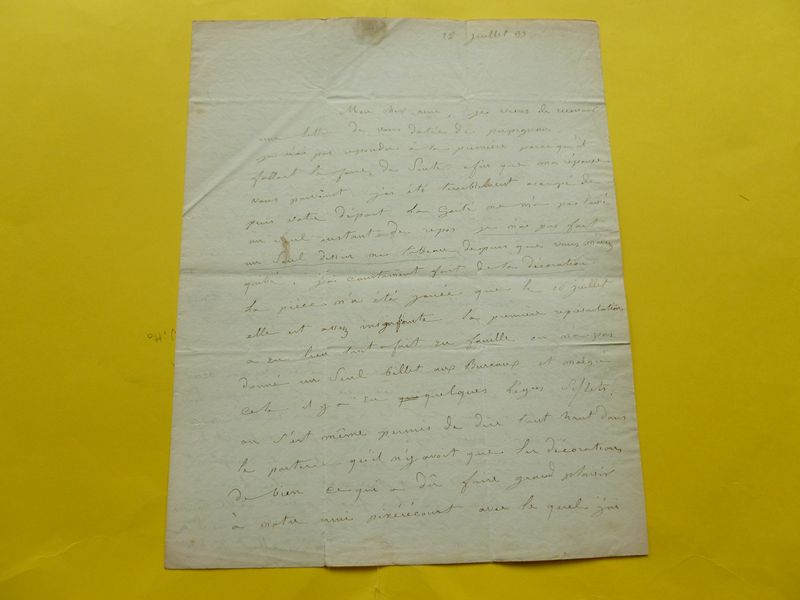 juillet
Mon cher ami, je viens de recevoir
une lettre de vous datée de perpignan
je n'ai pas repondu à la première parce qu'il
fallait le faire de Suite afin que ma réponse
vous parvient j'ai été terriblement occupé de
puis votre départ La Gaité ne m'a pas laissé
un seul instant de repos je n'ai pas fait
un Seul dessin ni tableau depuis que vous m'avez
quitté. j'ai constament fait de la décoration
La pièce n'a été jouée que le 16 juillet
elle est assez insignifiante la première représentation
a eu lieu tout a fait en famille on n'a pas
donné un Seul billet aux Bureaux et malgré
cela il y a eu quelques légers Sifflets.
on s'est même permis de dire tout haut dans
le parterre qu'il n'y avait que les décorations
de bien ce qui a dû faire grand plaisir
à notre ami pixérécourt avec le quel j'ai